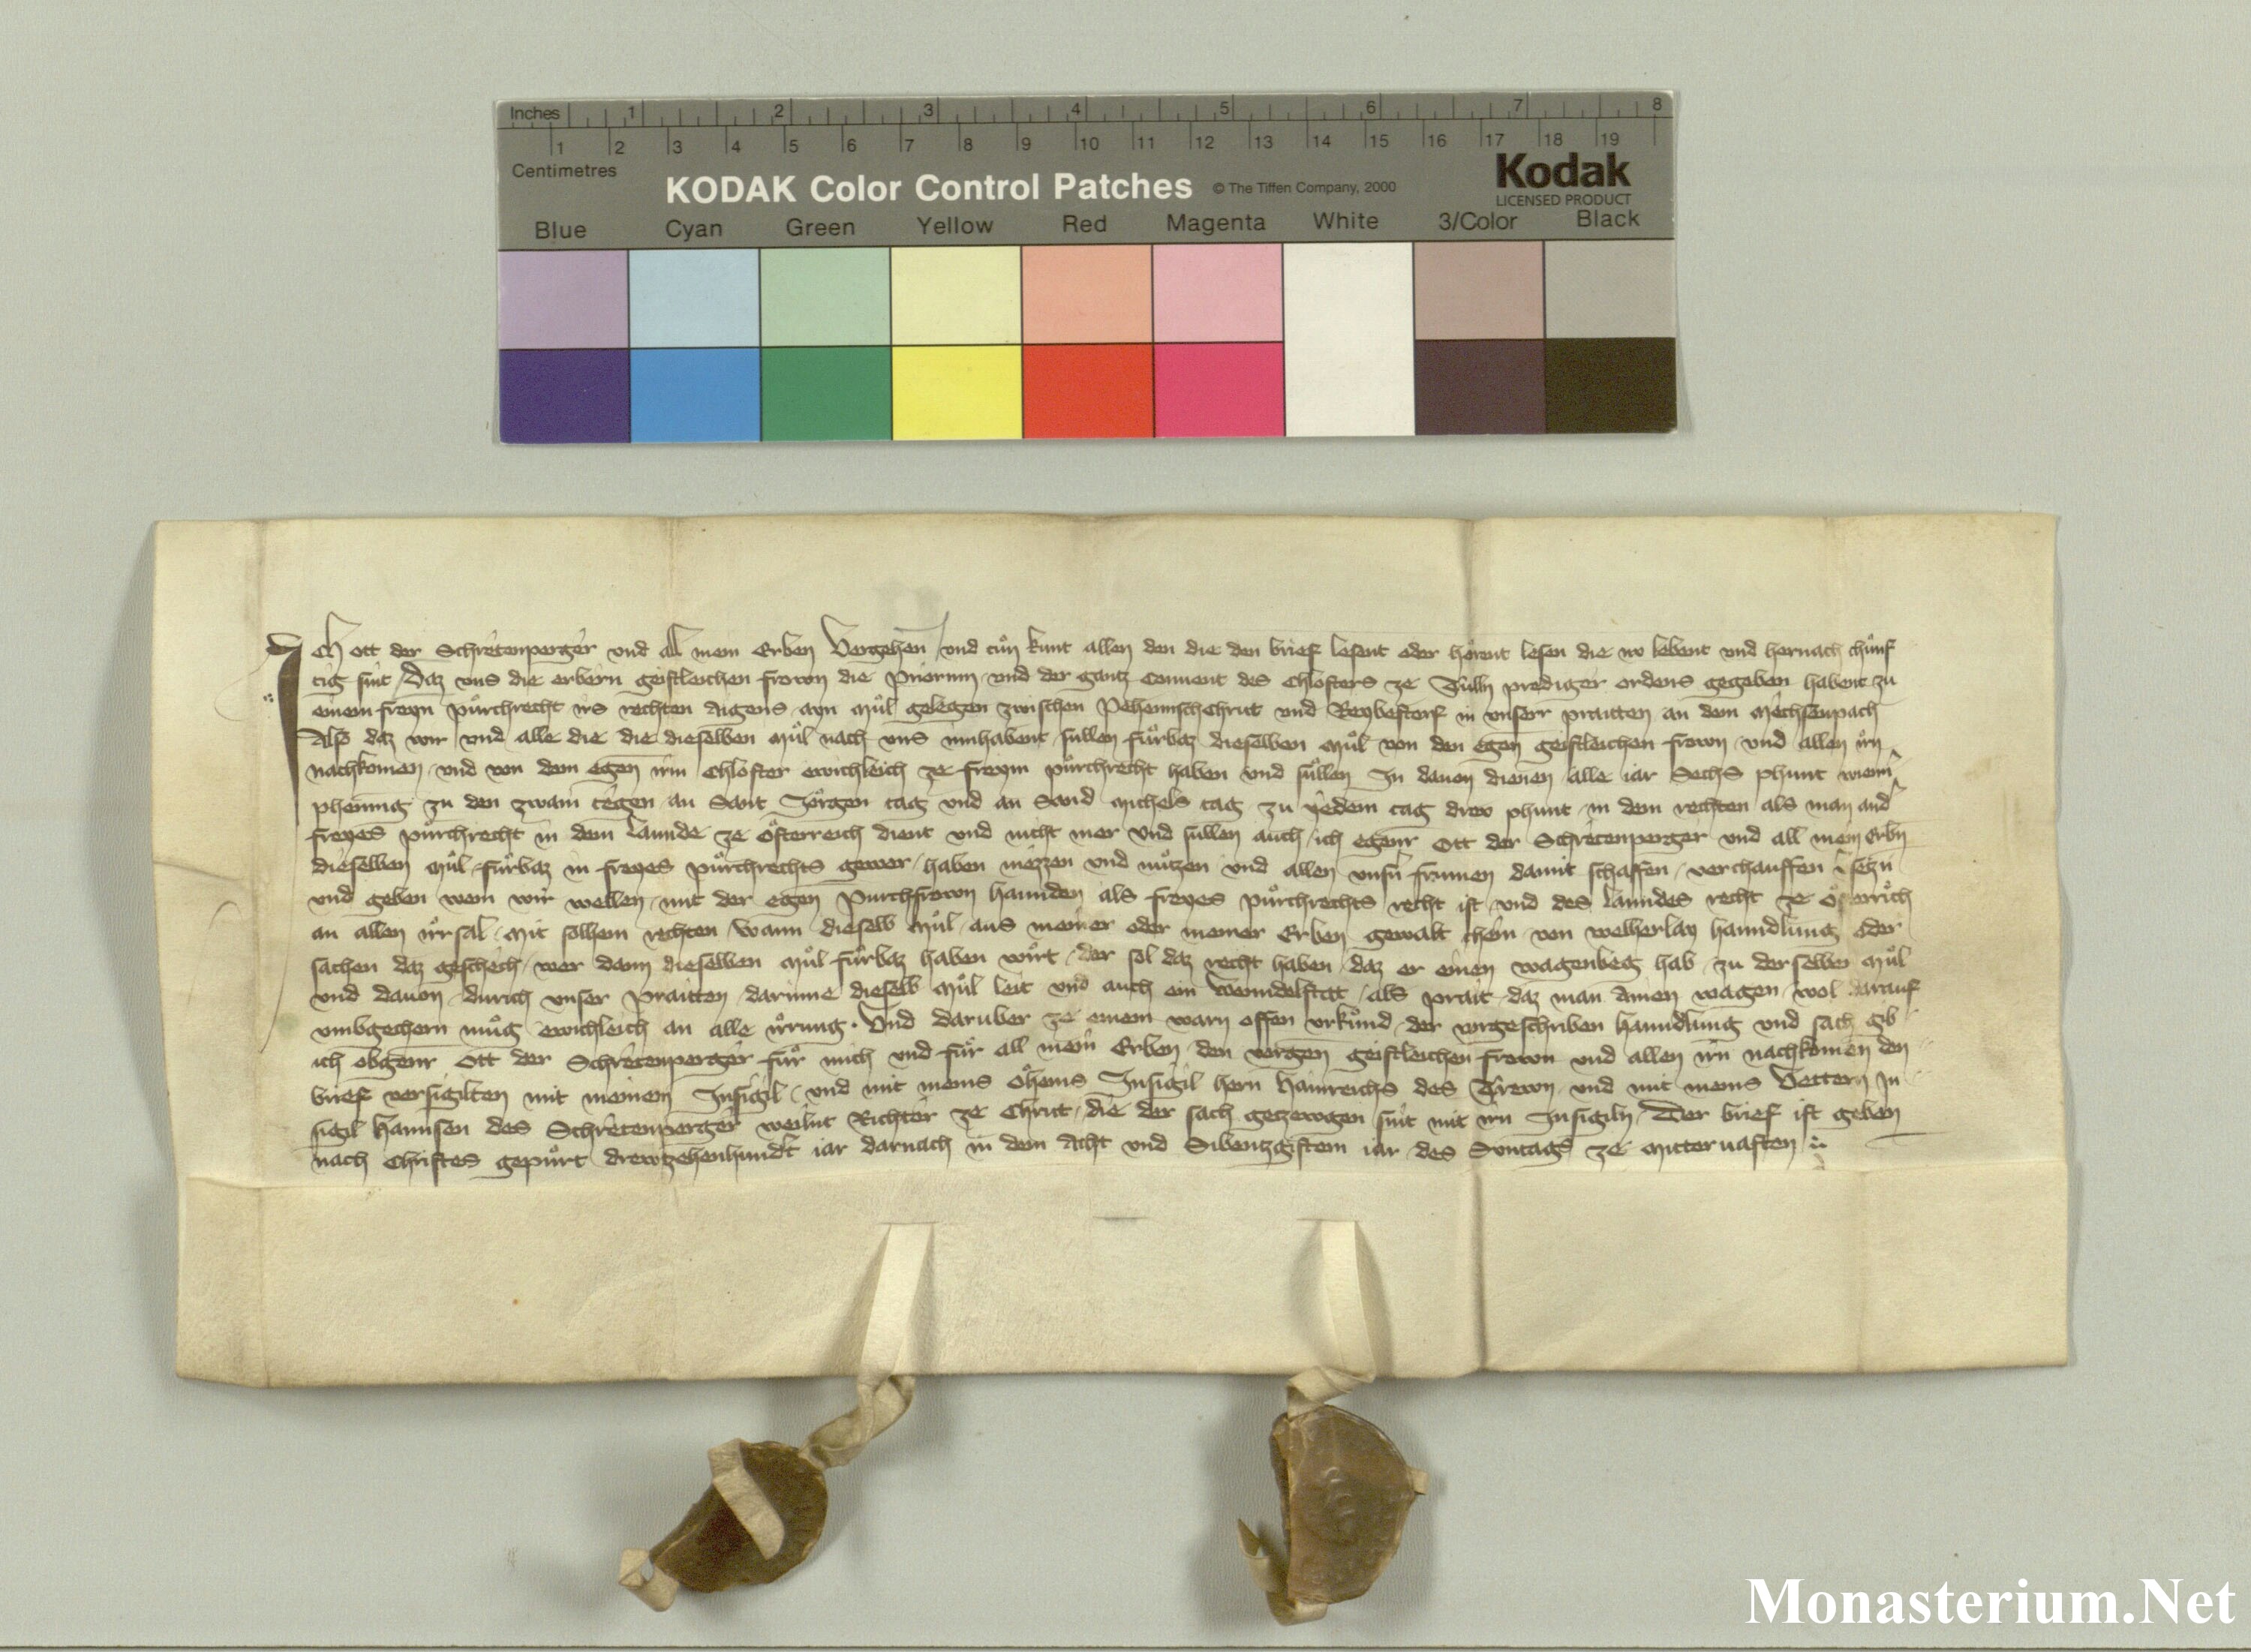 Inches 1 2 3 4 5 6 7 8
1 2 3 4 5 6 7 8 9 10 11 12 13 14 15 16 17 18 19
Centimetres
KODAK Color Control Patches © The Tiffen Company, 2000 Kodak
LICENSED PRODUCT
Blue Cyan Green Yellow Red Magenta White 3/Color Black
Ich Ott der Schretenperger und all mein Erben Vergehen und tůn kunt allen den die den brief lesent oder hȯrent lesen die nv lebent und hernach chůnf
tig sint Daz uns die erbern geistleichen frown die Priorinn und der gantz Convent des Chlosters ze Tulln prediger ordens gegeben habent zu
einem freyn půrchrecht irs rechten aigens ayn Můl gelegen zwischen PehemischChrut und Reybestorf in unserr praitten an dem Mechsenpach
Also daz wir und alle die die dieselben Můl nach uns innhabent sullen fůrbaz dieselben můl von den egen geistleichen frown und allen irn
nachkomen und von dem egen irm Chloster ewichleich ze freym půrchrecht haben und sůllen In davon dienen alle iar Sechs phunt wienn
phenning zu den zwain tegen an Sant Jorgen tag und an Sand Michels tag zu yedem tag drew phunt in dem rechten als man and
freyes půrchrecht in dem Lannde ze Ȯsterreich dient und nicht mer Und sullen auch ich egenr Ott der Schretenperger und all mein Erbn
dieselben Můl fůrbaz in freyes půrchrechts gewer haben niezzen und nůtzen und allen unsern frumen damit schaffen verchauffen setzn
und geben wem wir wellen mit der egen Purchfrown hannden als freyes půrchrechts recht ist und des Lanndes recht ze
an allen irrsal Mit solhem rechten Wann dieselb Můl aus meiner oder meiner Erben gewalt chem von welherlay hanndlung oder
sachen daz geschech wer dann dieselben Můl fůrbaz haben wirt der sol daz recht haben daz er einen wagenweg hab zu derselben Můl
und davon durich unser Praitten darinne dieselb Můl leit und auch ein Wenndelstat als prait daz man ainen wagen wol darauf
umbgechern můg ewichleich an alle irrung. Und daruber ze einem warn offen urkůnd der vorgeschriben hanndlung und sach gib
ich obgenr Ott der Schretenperger fůr mich und fůr all mein Erben den vorgen geistleichen frown und allen irn nachkomen den
brief versigilten mit meinem Insigil und mit meins Ȯhems Insigil hern Hainreichs des und mit meins Vettern In
sigil Hannsen des Schretenperger weilnt Richter ze Chrut die der sach gezewgen sint mit irn Insigiln Der brief ist geben
nach Christes gepůrt drewtzehenhundert iar darnach in dem Acht und Sibentzgistem iar des Suntags ze Mittervasten
Monasterium.Net